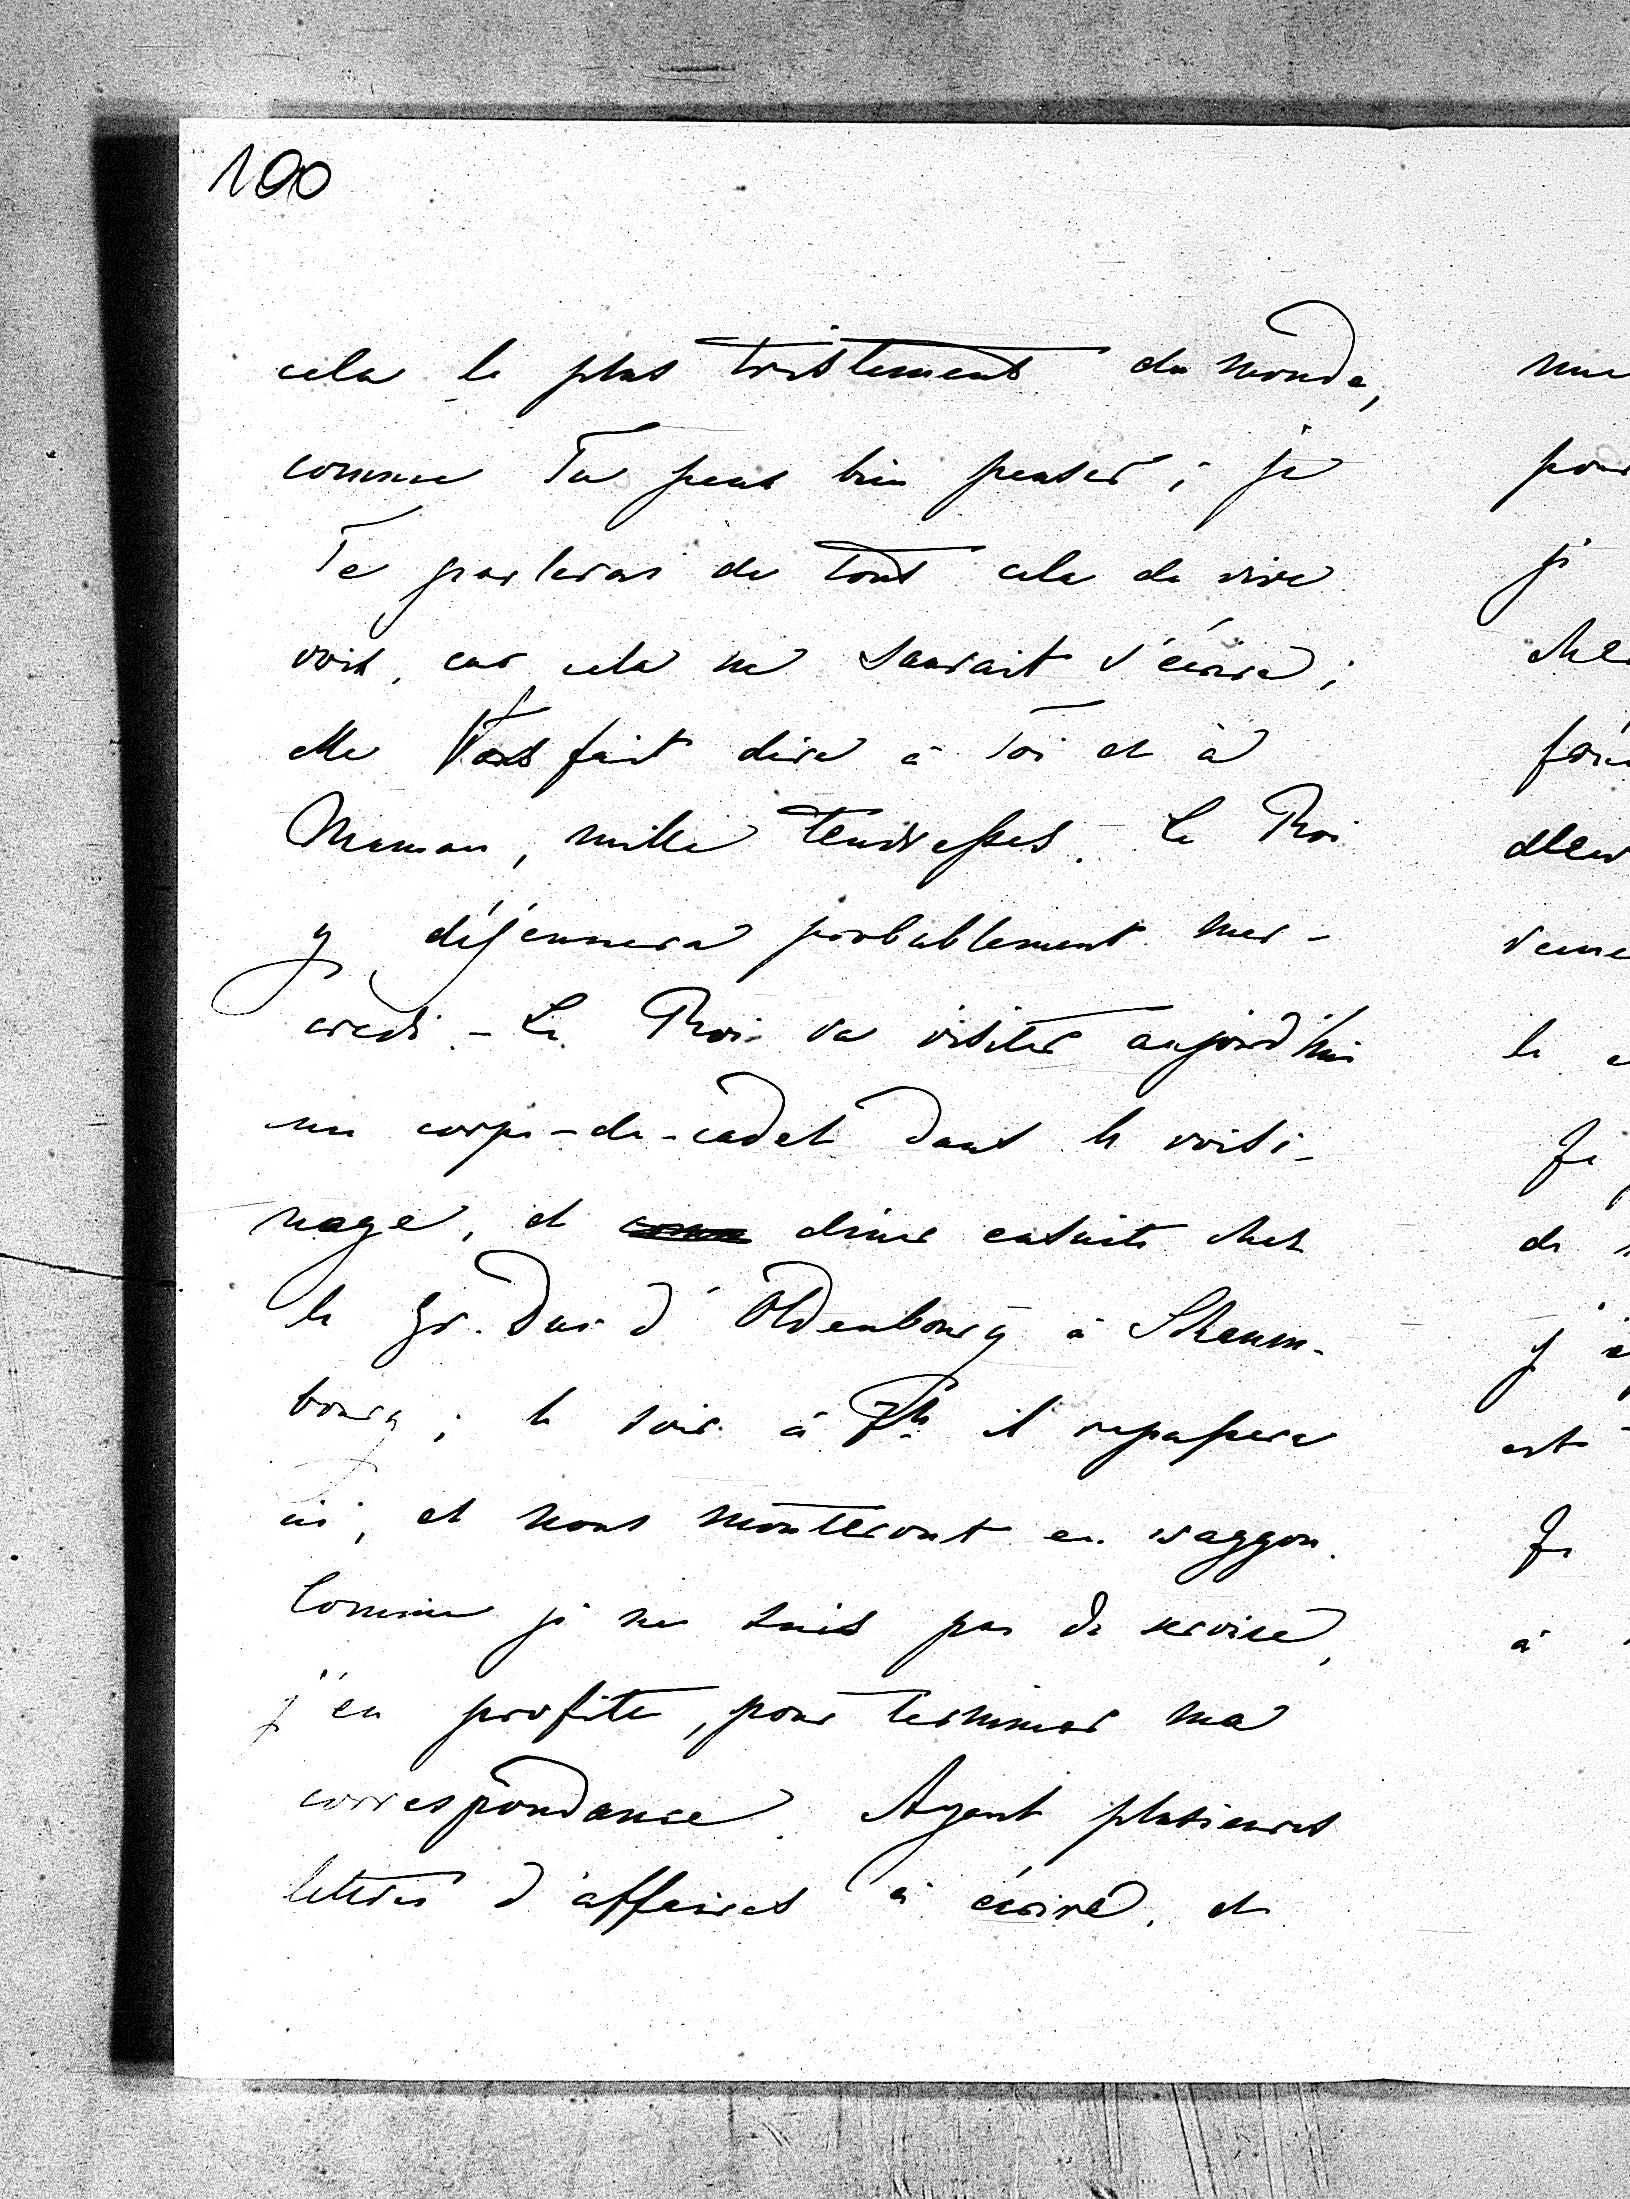 100
cela le plus tristement du monde,
comme Tu peux bien penser; je
Te parlerai de tout cela de vive
voix, car cela ne saurait s'écrire;
elle Vous fait dire à Toi et à
Maman, mille tendresses. Le Roi
y déjeunera probablement mer-
credi. – Le Roi va visiter aujourd'hui
un corps-de-cadet dans le voisi-
nage, et dîne ensuite chez
le Gr. Duc d'Oldenbourg à Schaum-
bourg; le soir à 7h il repassera
ici, et nous monteront en waggon.
Comme je ne suis pas de service,
j'en profite, pour terminer ma
correspondance. Ayant plusieurs
lettres d'affaires à écrire, et
pour
je
Je
de
Je
à